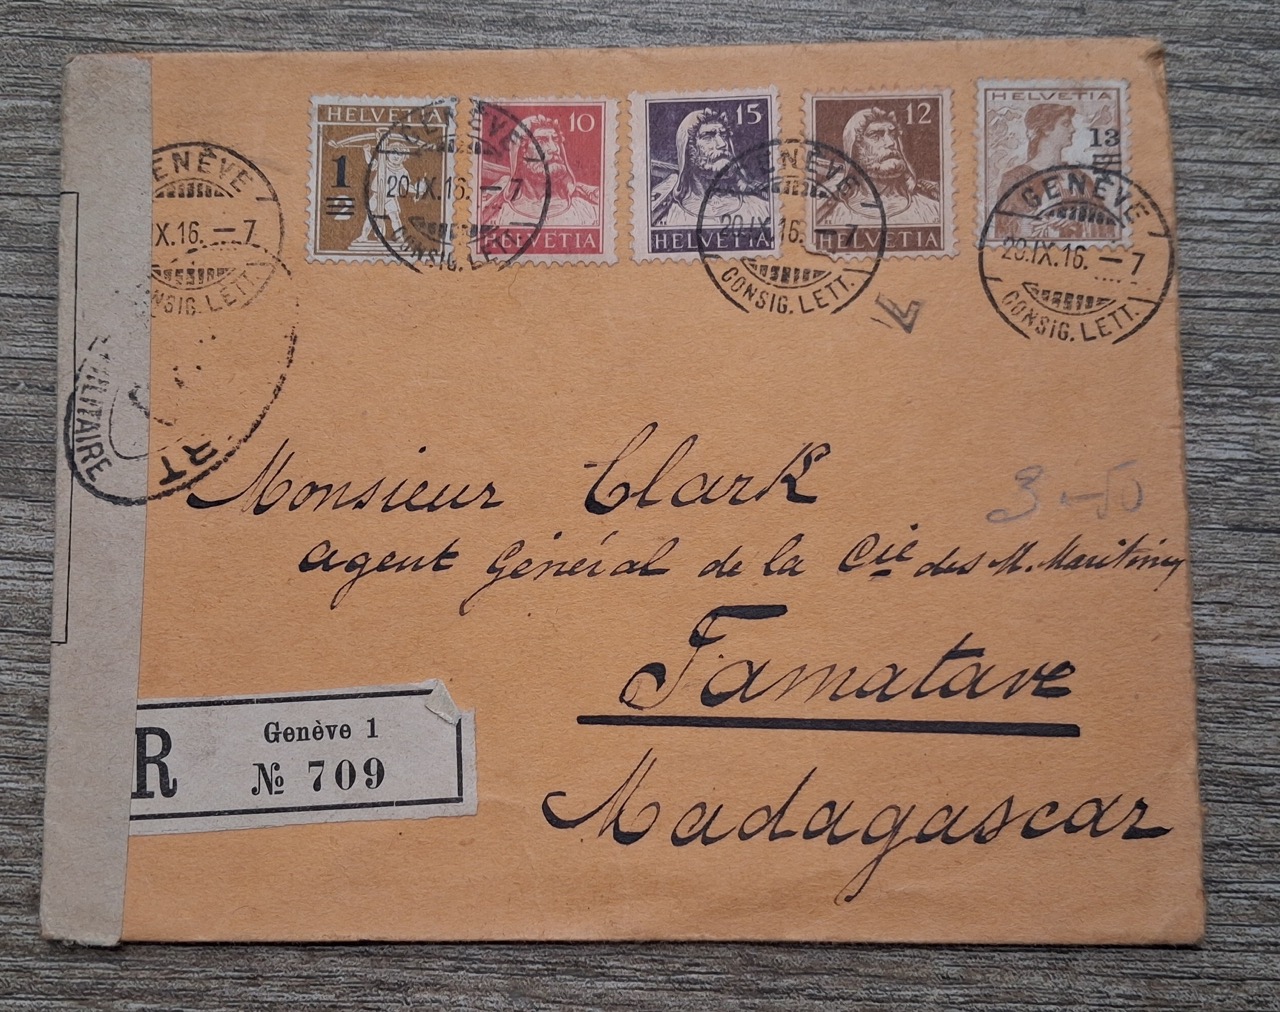 HELVETIA
1
2
10
HELVETIA
15
HELVETIA
12
HELVETIA
HELVETIA
13
GENÈVE
X.16.–7
CONSIG. LETT.
GENÈVE
20.IX.16.–7
CONSIG. LETT.
GENÈVE
20.IX.16.–7
CONSIG. LETT.
GENÈVE
20.IX.16.–7
CONSIG. LETT.
MILITAIRE
Monsieur Clark
agent Général de la Cie des M. Maritimes
3-50
Tamatave
Madagascar
R
Genève 1
№ 709